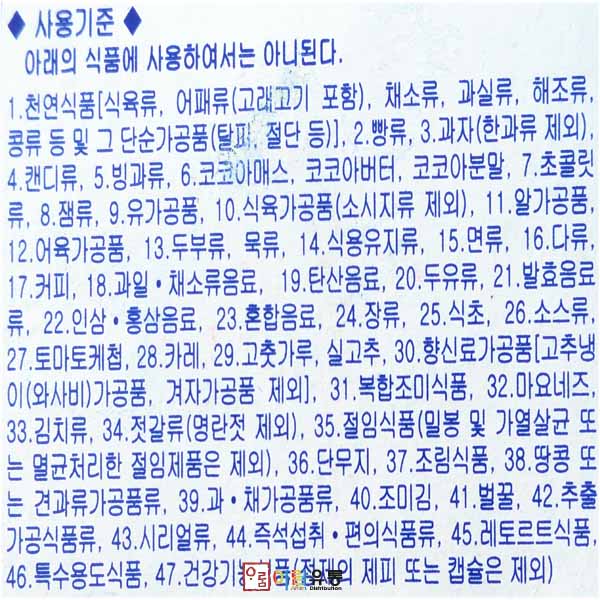 ◆ 사용기준 ◆
아래의 식품에 사용하여서는 아니된다.
1.천연식품[식육류, 어패류(고래고기 포함), 채소류, 과실류, 해조류,
콩류 등 및 그 단순가공품(탈피, 절단 등)], 2.빵류, 3.과자(한과류 제외),
4.캔디류, 5.빙과류, 6.코코아매스, 코코아버터, 코코아분말, 7.초콜릿
류, 8.잼류, 9.유가공품, 10.식육가공품(소시지류 제외), 11.알가공품,
12.어육가공품, 13.두부류, 묵류, 14.식용유지류, 15.면류, 16.다류,
17.커피, 18.과일·채소류음료, 19.탄산음료, 20.두유류, 21.발효음료
류, 22.인삼·홍삼음료, 23.혼합음료, 24.장류, 25.식초, 26.소스류,
27.토마토케첩, 28.카레, 29.고춧가루, 실고추, 30.향신료가공품[고추냉
이(와사비)가공품, 겨자가공품 제외], 31.복합조미식품, 32.마요네즈,
33.김치류, 34.젓갈류(명란젓 제외), 35.절임식품(밀봉 및 가열살균 또
는 멸균처리한 절임제품은 제외), 36.단무지, 37.조림식품, 38.땅콩 또
는 견과류가공품류, 39.과·채가공품류, 40.조미김, 41.벌꿀, 42.추출
가공식품류, 43.시리얼류, 44.즉석섭취·편의식품류, 45.레토르트식품,
46.특수용도식품, 47.건강기 품(정제의 제피 또는 캡슐은 제외)
유통
Distribution